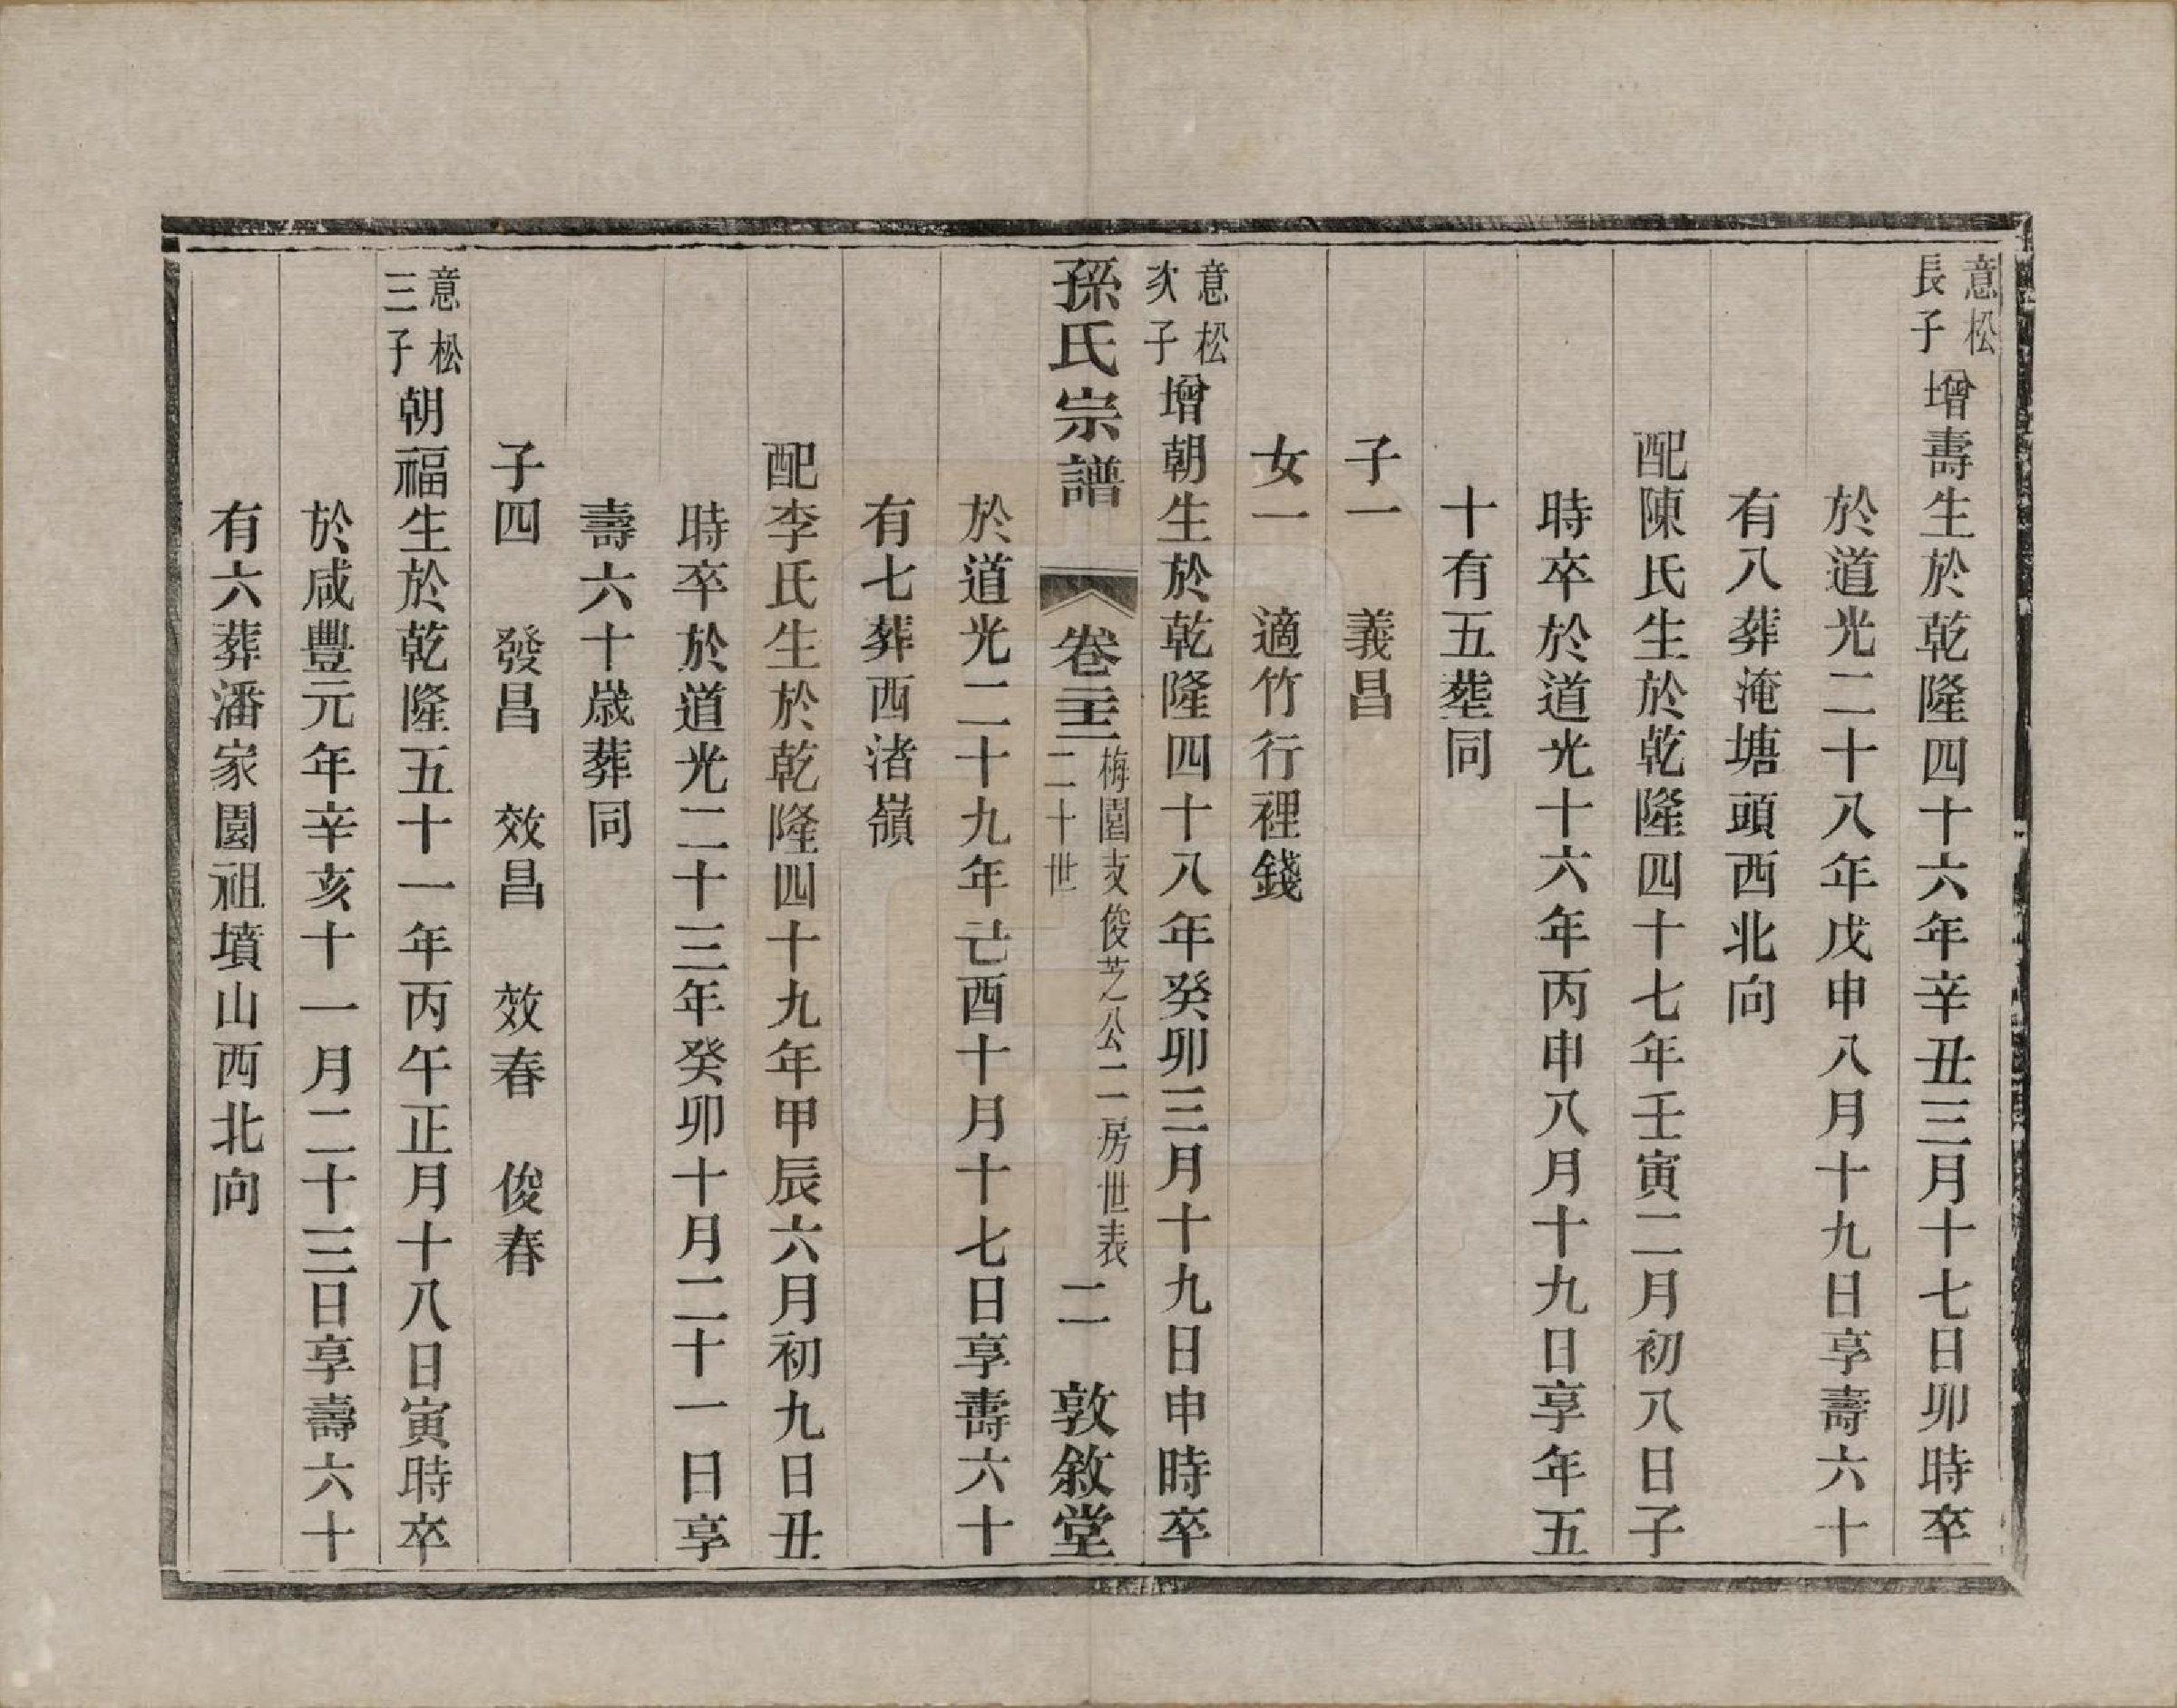 意松長子增壽生於乾隆四十六年辛丑三月十七日卯時卒
於道光二十八年戊申八月十九日享壽六十
有八葬淹塘頭西北向
配陳氏生於乾隆四十七年壬寅二月初八日子
時卒於道光十六年丙申八月十九日享年五
十有五塟同
子一　義昌
女一　適竹行裡錢
意松次子增朝生於乾隆四十八年癸卯三月十九日申時卒
孫氏宗譜　卷二十三　梅園支俊芝公二房世表　二十世　二　敦敘堂
於道光二十九年己酉十月十七日享壽六十
有七葬西渚嶺
配李氏生於乾隆四十九年甲辰六月初九日丑
時卒於道光二十三年癸卯十月二十一日享
壽六十歲葬同
子四　發昌　效昌　效春　俊春
意松三子朝福生於乾隆五十一年丙午正月十八日寅時卒
於咸豐元年辛亥十一月二十三日享壽六十
有六葬潘家園祖墳山西北向